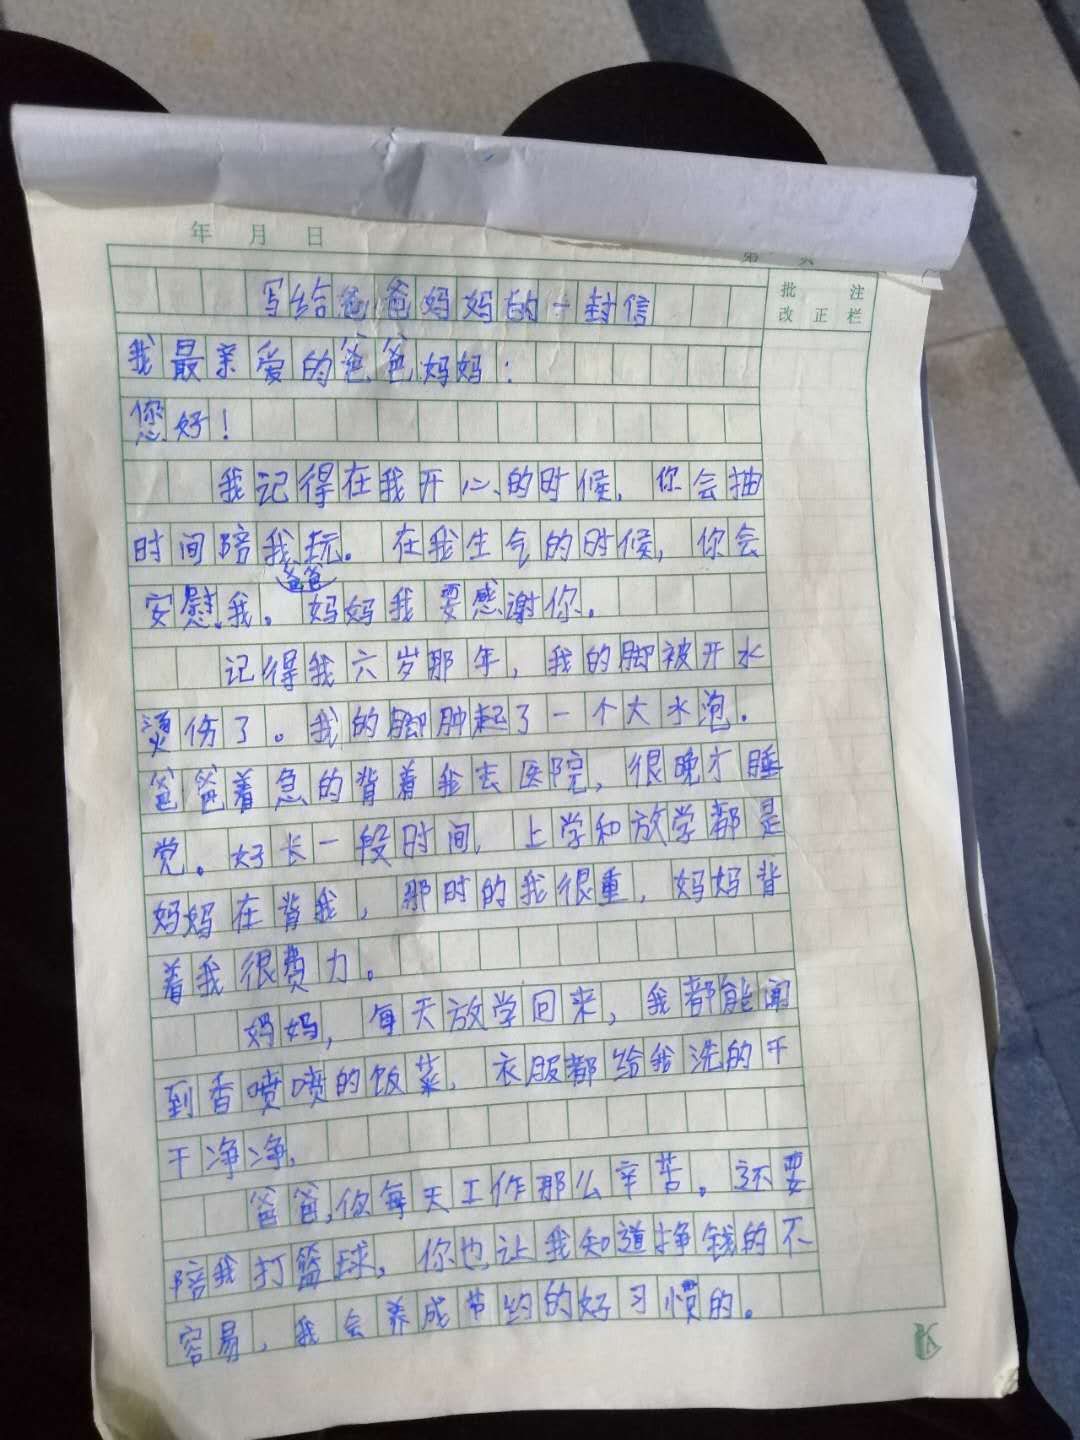 年 月 日
第 页
批 注
改 正 栏
写给爸爸妈妈的一封信
我最亲爱的爸爸妈妈:
您好!
我记得在我开心的时候,你会抽
时间陪我玩。在我生气的时候,你会
安慰我。爸爸妈妈我要感谢你。
记得我六岁那年,我的脚被开水
烫伤了。我的脚肿起了一个大水泡。
爸爸着急的背着我去医院,很晚才睡
觉。好长一段时间,上学和放学都是
妈妈在背我,那时的我很重,妈妈背
着我很费力。
妈妈,每天放学回来,我都能闻
到香喷喷的饭菜,衣服都给我洗的干
干净净。
爸爸,你每天工作那么辛苦。还要
陪我打篮球,你也让我知道挣钱的不
容易,我会养成节约的好习惯的。